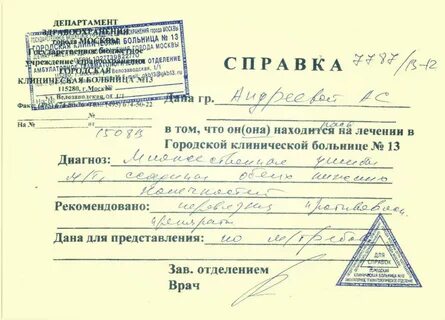 ДЕПАРТАМЕНТ
ЗДРАВООХРАНЕНИЯ
города Москвы
Государственное бюджетное
учреждение здравоохранения
ГОРОДСКАЯ
КЛИНИЧЕСКАЯ БОЛЬНИЦА №13
115280, г. Москва
ул. Велозаводская, д. 1/1
ГОРОДСКАЯ КЛИНИЧЕСКАЯ БОЛЬНИЦА № 13
На №
150813
СПРАВКА 7787/13-12
Дана гр. Андреевой АС
в том, что он(она) находится на лечении в
Городской клинической больнице № 13
Диагноз: Множественные ушибы
м/т, ссадины обеих нижних
конечностей
Рекомендовано:
Дана для представления: по м/требов
Зав. отделением
Врач
ДЛЯ
СПРАВОК